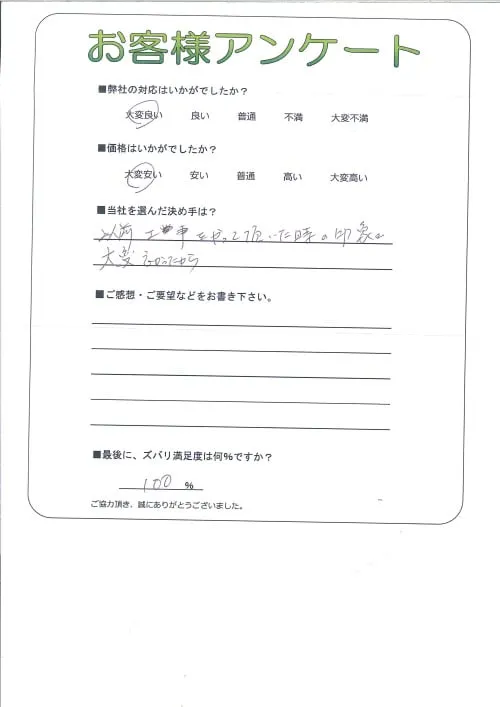 お客様アンケート
■弊社の対応はいかがでしたか？
大変良い 良い 普通 不満 大変不満
■価格はいかがでしたか？
大変安い 安い 普通 高い 大変高い
■当社を選んだ決め手は？
以前 工事をやって頂いた時の印象が
大変 よかったから
■ご感想・ご要望などをお書き下さい。
■最後に、ズバリ満足度は何％ですか？
100 ％
ご協力頂き、誠にありがとうございました。